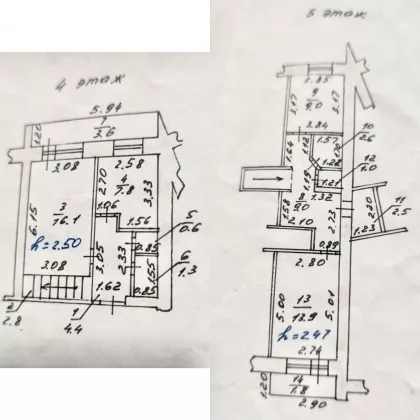 4 этаж
5.94
1.20
7
3.6
3.08
2.58
2.70
4
7.8
3.33
3
16.1
6.15
1.06
1.56
5
0.6
h=2.50
3.05
2.33
0.85
6
1.3
1.55
3.08
0.85
1.62
2
2.8
1
4.4
5 этаж
2.85
9
9.0
3.17
3.17
2.84
1.57
10
2.6
1.64
1.12
1.70
1.28
12
1.0
1.19
1.21
8
9.0
1.32
11
2.5
1.58
2.10
2.73
2.20
1.23
0.89
2.80
5.00
5.01
13
13.9
h=2.47
2.76
14
7.8
1.20
2.90